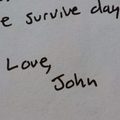 e survive day
Love,
John